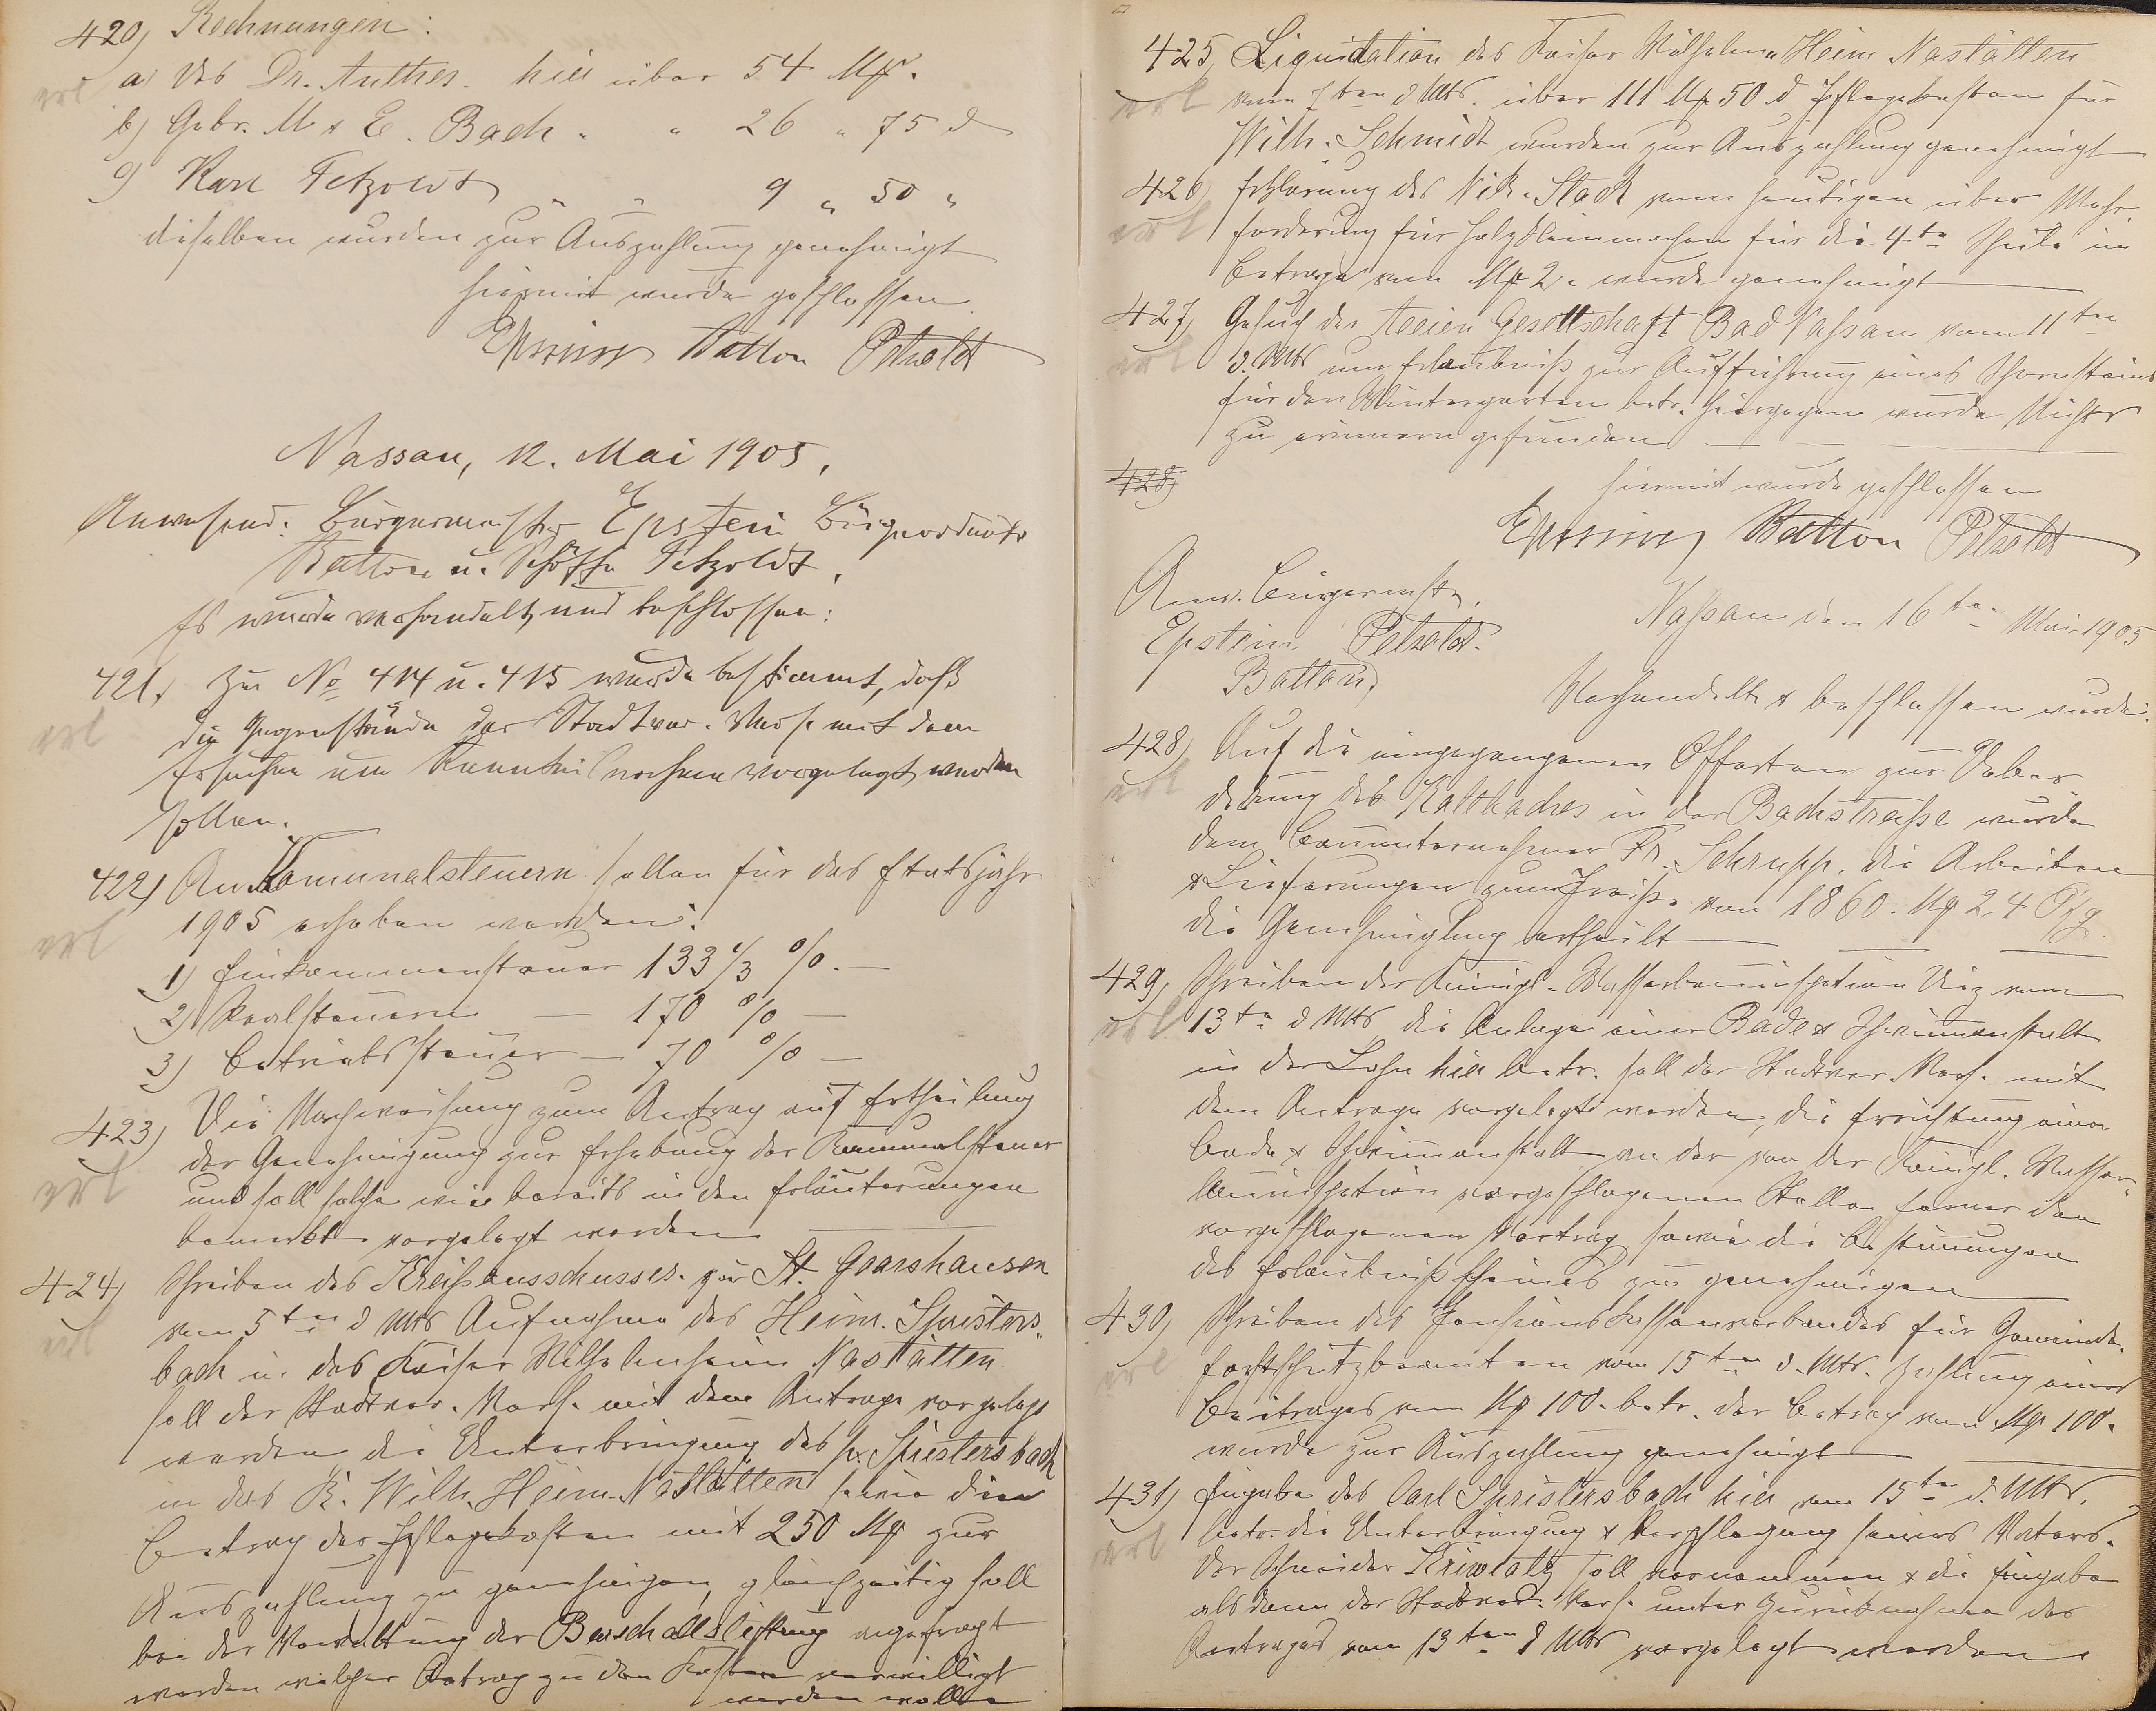 420) Rechnungen:
erl
a) des Dr. Anthes. hier über 54 Mk.
b) Gebr. M & E. Bach " " 26 " 75 d
c) Karl Petzoldt " " 9 " 50 "
dieselben wurden zur Auszahlung genehmigt
hiermit wurde geschlossen
Epstein Batton Petzoldt
Nassau, 12. Mai 1905,
Anwesend: Bürgermeister Epstein Beigeordneter
Batton u. Schöffe Petzoldt,
Es wurde verhandelt und beschlossen:
421, Zu No 414 u. 415 wurde bestimmt, daß
erl
die Gegenstände der Stadtver. Vers. mit dem
Ersuchen um Kenntnißnahme vorgelegt werden
sollen.
422) An Komunalsteuern sollen für das Etatsjahr
erl
1905 erhoben werden:
1) Einkommensteuer 133 1/3 % —
2) Realsteuern — 170 % —
3) Betriebssteuer — 70 % —
423) Die Nachweisung zum Antrag auf Ertheilung
der Genehmigung zur Erhebung der Kommunalsteuer
erl
und soll solche wie bereits in den Erläuterungen
bemerkt vorgelegt werden
424) Schreiben des Kreißausschusses. zu St. Goarshausen
erl
vom 5ten d Mts Aufnahme des Heinr. Spriesters-
bach in das Kaiser Wilhelmheim Nastätten
soll der Stadtver. Vers. mit dem Antrage vorgelegt
werden die Unterbringung des p. Spriestersbach
in das K. Wilh. Heim Nastätten sowie den
Betrag der Pflegekosten mit 250 Mk zur
Auszahlung zu genehmigen, gleichzeitig soll
bei der Verwaltung der Stiftung angefragt
werden welcher Betrag zu den Kosten verwilligt
werden wolle
425, Liquidation des Kaiser Wilhelm Heim Nastätten
erl
vom 7ten d Mts. über 111 Mk 50 d Pflegekosten für
Wilh. Schmidt wurden zur Auszahlung genehmigt
426) Erklärung des Nik. Stack vom heutigen über Mehr-
erl
forderung für Holzkleinmachen für die 4te Schule im
Betrage von Mk 2. wurde genehmigt
427) Gesuch der Actien Gesellschaft Bad Naßau vom 11ten
erl
d. Mts um Erlaubniß zur Aufführung eines Schornsteins
für den Wintergarten betr. hiergegen wurde Nichts
zu erinnern gefunden
428)
hiermit wurde geschlossen
Epstein Batton Petzoldt
Anw. Bürgermstr.
Epstein Petzoldt.
Batton,
Naßau den 16ten Mai 1905
Verhandelt & beschlossen wurde:
428) Auf die eingegangenen Offerten zur Ueber-
erl
deckung des Kaltbaches in der Bachstraße wurde
dem Bauunternehmer Fr. Schrupp, die Arbeiten
& Lieferungen zum Preise von 1860. Mk 24 Pfg.
die Genehmigung ertheilt
429, Schreiben der Königl. Wasserbauinspektion Diez vom
erl
13ten d Mts die Anlage einer Bade & Schwimmanstalt
in der Lahn hier betr. soll der Stadtver. Vers. mit
dem Antrage vorgelegt werden, die Errichtung einer
Bade & Schwimmanstalt an der von der Königl. Wasser-
bauinspektion vorgeschlagenen Stelle ferner den
vorgeschlagenen Vertrag sowie die Bestimmungen
des Erlaubnißscheines zu genehmigen
430) Schreiben des Pensionskassenverbandes für Gemeinde-
erl
forstschutzbeamten vom 15ten d. Mts. Zahlung eines
Beitrages von Mk 100. betr. der Betrag von Mk 100.
wurde zur Auszahlung genehmigt
431) Eingabe des Carl Spriestersbach hier vom 15ten d. Mts.
erl
betr. die Unterbringung & Verpflegung seines Vaters.
der Schneider soll vernommen & die Eingabe
als dann der Stadtver. Vers. unter Zurücknahme des
Antrages vom 13ten d Mts vorgelegt werden